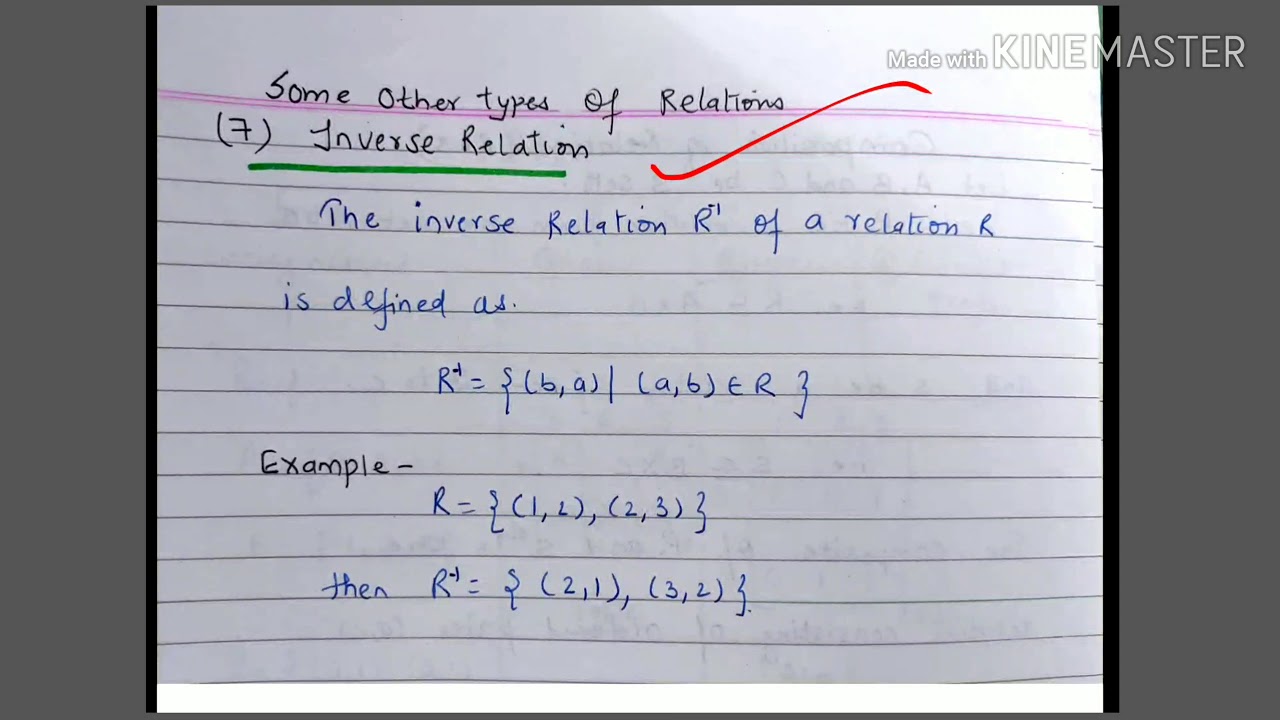 Made with KINEMASTER
Some other types of Relations
(7) Inverse Relation
The inverse Relation R⁻¹ of a relation R
is defined as.
R⁻¹ = {(b, a) | (a, b) ∈ R }
Example -
R = {(1, 2), (2, 3)}
then R⁻¹ = { (2, 1), (3, 2)}.